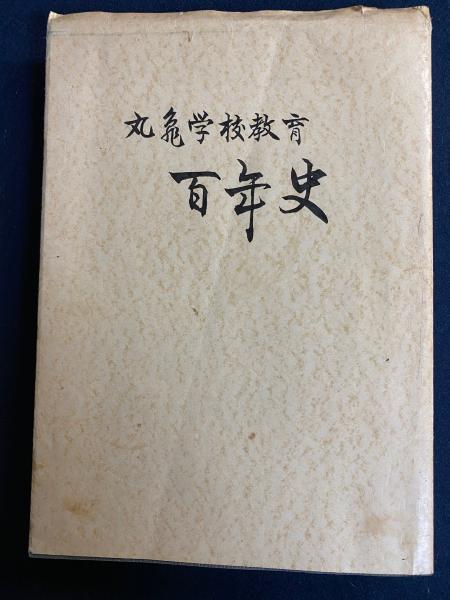 丸亀学校教育
百年史